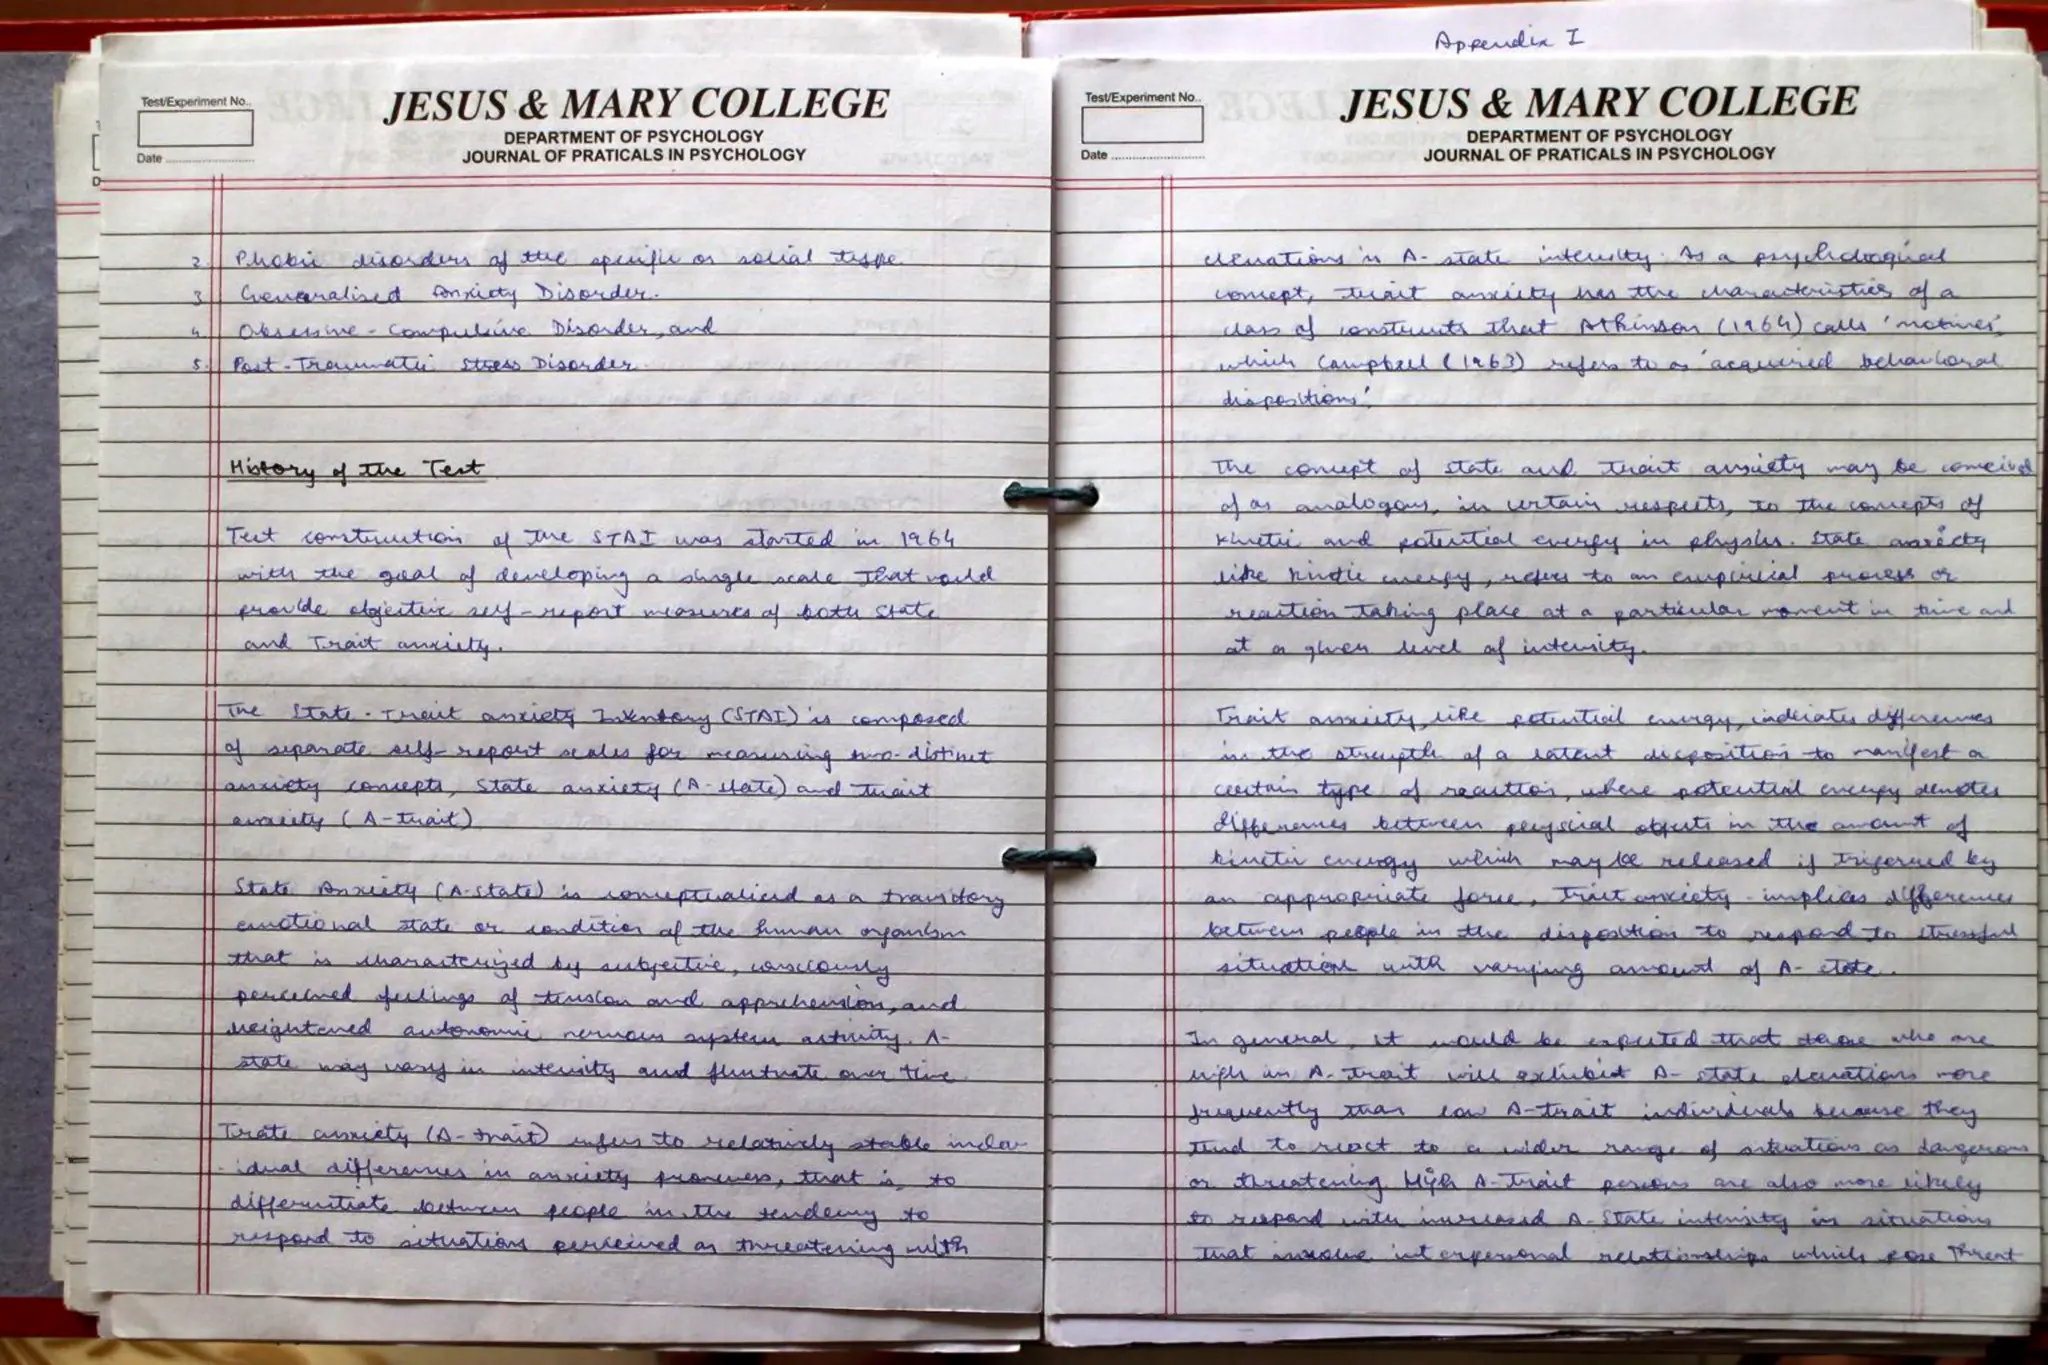 Test/Experiment No..
JESUS & MARY COLLEGE
DEPARTMENT OF PSYCHOLOGY
Date
JOURNAL OF PRATICALS IN PSYCHOLOGY
2. Phobic disorders of the specific or social type.
3. Generalised Anxiety Disorder.
4. Obsessive - Compulsive Disorder, and
5. Post - Traumatic Stress Disorder.
History of the Test
Test construction of the STAI was started in 1964
with the goal of developing a single scale that would
provide objective self - report measures of both State
and Trait anxiety.
The State - Trait anxiety Inventory (STAI) is composed
of separate self - report scales for measuring two - distinct
anxiety concepts, State anxiety (A - state) and trait
anxiety (A - trait)
State Anxiety (A-state) is conceptualised as a transitory
emotional state or condition of the human organism
that is characterized by subjective, consciously
perceived feelings of tension and apprehension, and
heightened autonomic nervous system activity. A-
state may vary in intensity and fluctuate over time.
Trate anxiety (A - trait) refers to relatively stable indiv
idual differences in anxiety proneness, that is, to
differentiate between people in the tendency to
respond to situations perceived as threatening with
Appendix I
Test/Experiment No..
JESUS & MARY COLLEGE
DEPARTMENT OF PSYCHOLOGY
Date
JOURNAL OF PRATICALS IN PSYCHOLOGY
elevations in A - state intensity. As a psychological
concept, trait anxiety has the characteristics of a
class of constructs that Atkinson (1964) calls 'motives',
which Campbell (1963) refers to as 'acquired behavioral
dispositions'.
The concept of state and trait anxiety may be conceived
of as analogous, in certain respects, to the concepts of
kinetic and potential energy in physics. State anxiety
like kinetic energy, refers to an empirical process or
reaction taking place at a particular moment in time and
at a given level of intensity.
Trait anxiety, like potential energy, indicates differences
in the strength of a latent disposition to manifest a
certain type of reaction, where potential energy denotes
differences between physical objects in the amount of
kinetic energy which may be released if triggered by
an appropriate force, Trait anxiety - implies differences
between people in the disposition to respond to stressful
situations with varying amount of A - state.
In general, it would be expected that those who are
high in A - trait will exhibit A - state elevations more
frequently than low A - trait individuals because they
tend to react to a wider range of situations as dangerous
or threatening. High A - Trait persons are also more likely
to respond with increased A - State intensity in situations
that involve interpersonal relationships which pose threat